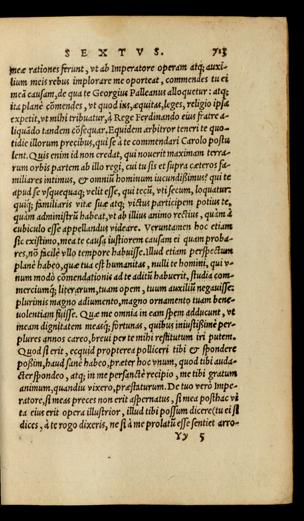 SEXTVS. 713
meæ rationes ferunt, vt ab Imperatore operam atq; auxi-
lium meis rebus implorare me oporteat, commendes tu ei
meã causam, de qua te Georgius Palleanus alloquetur: atq;
ita planè cõmendes, vt quod ius, æquitas, leges, religio ipsa
expetit, vt mihi tribuatur, à Rege Ferdinando eius fratre a-
liquãdo tandem cõsequar. Equidem arbitror teneri te quo-
tidie illorum precibus, qui se à te commendari Carolo postu
lent. Quis enim id non credat, qui nouerit maximam terra-
rum orbis partem ab illo regi, cui tu sis et supra cæteros fa-
miliares intimus, & omniũ hominum iucundißimus? qui te
apud se vsquequaq; velit esse, qui tecũ, vti secum, loquatur:
quiq; familiaris vitæ suæ atq; victus participem potius te,
quàm administrũ habeat, vt ab illius animo rectius, quàm à
cubiculo esse appellandus videare. Veruntamen hoc etiam
sic existimo, mea te causa iustiorem causam ei quam proba-
res, nõ facilè vllo tempore habuisse. Illud etiam perspectum
planè habeo, quæ tua est humanitas, nulli te homini, qui v-
num modò cõmendationis ad te aditũ habuerit, studia com-
merciumq; literarum, tuam opem, tuum auxiliũ negauisse:
plurimis magno adiumento, magno ornamento tuam bene-
uolentiam fuisse. Quæ me omnia in eam spem adducunt, vt
meam dignitatem measq; fortunas, quibus iniustißimè per-
plures annos careo, breui per te mihi restitutum iri putem.
Quod si erit, ecquid propterea polliceri tibi & spondere
poßim, haud sanè habeo, præter hoc vnum, quod tibi auda-
cter spondeo, atq; in me persanctè recipio, me tibi gratum
animum, quandiu vixero, præstaturum. De tuo verò Impe-
ratore, si meas preces non erit aspernatus, si mea posthac vi
ta eius erit opera illustrior, illud tibi possum dicere (tu ei si
dices, à te rogo dixeris, ne si à me prolatũ esse sentiet arro-
Yy 5